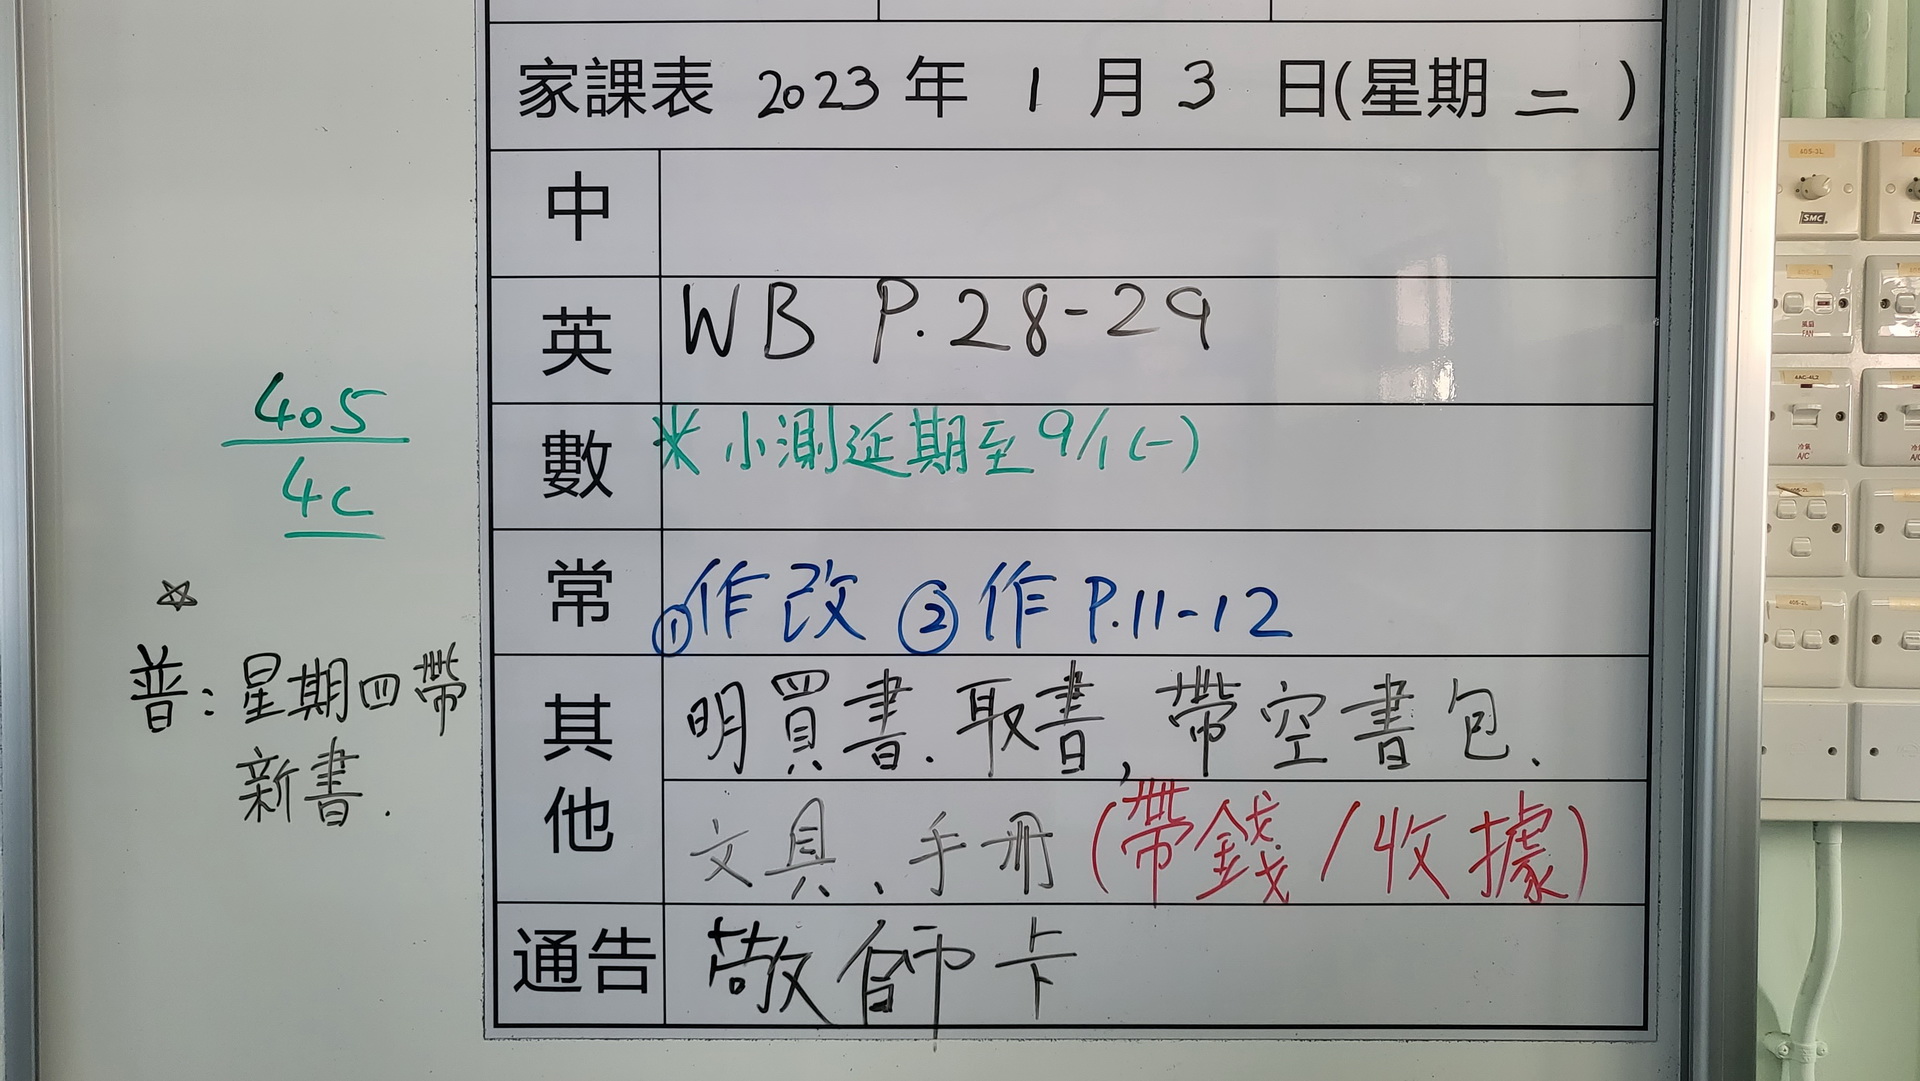 家課表 2023 年 1 月 3 日(星期 二 )
中
英 WB P.28-29
數 * 小測延期至 9/1 (一)
常 ①作改 ②作 P.11-12
其他 明買書.取書,帶空書包.
文具、手冊 (帶錢/收據)
通告 敬師卡
405
4C
☆
普:星期四帶
新書.
405-3L
SMC
風扇
FAN
冷氣
A/C